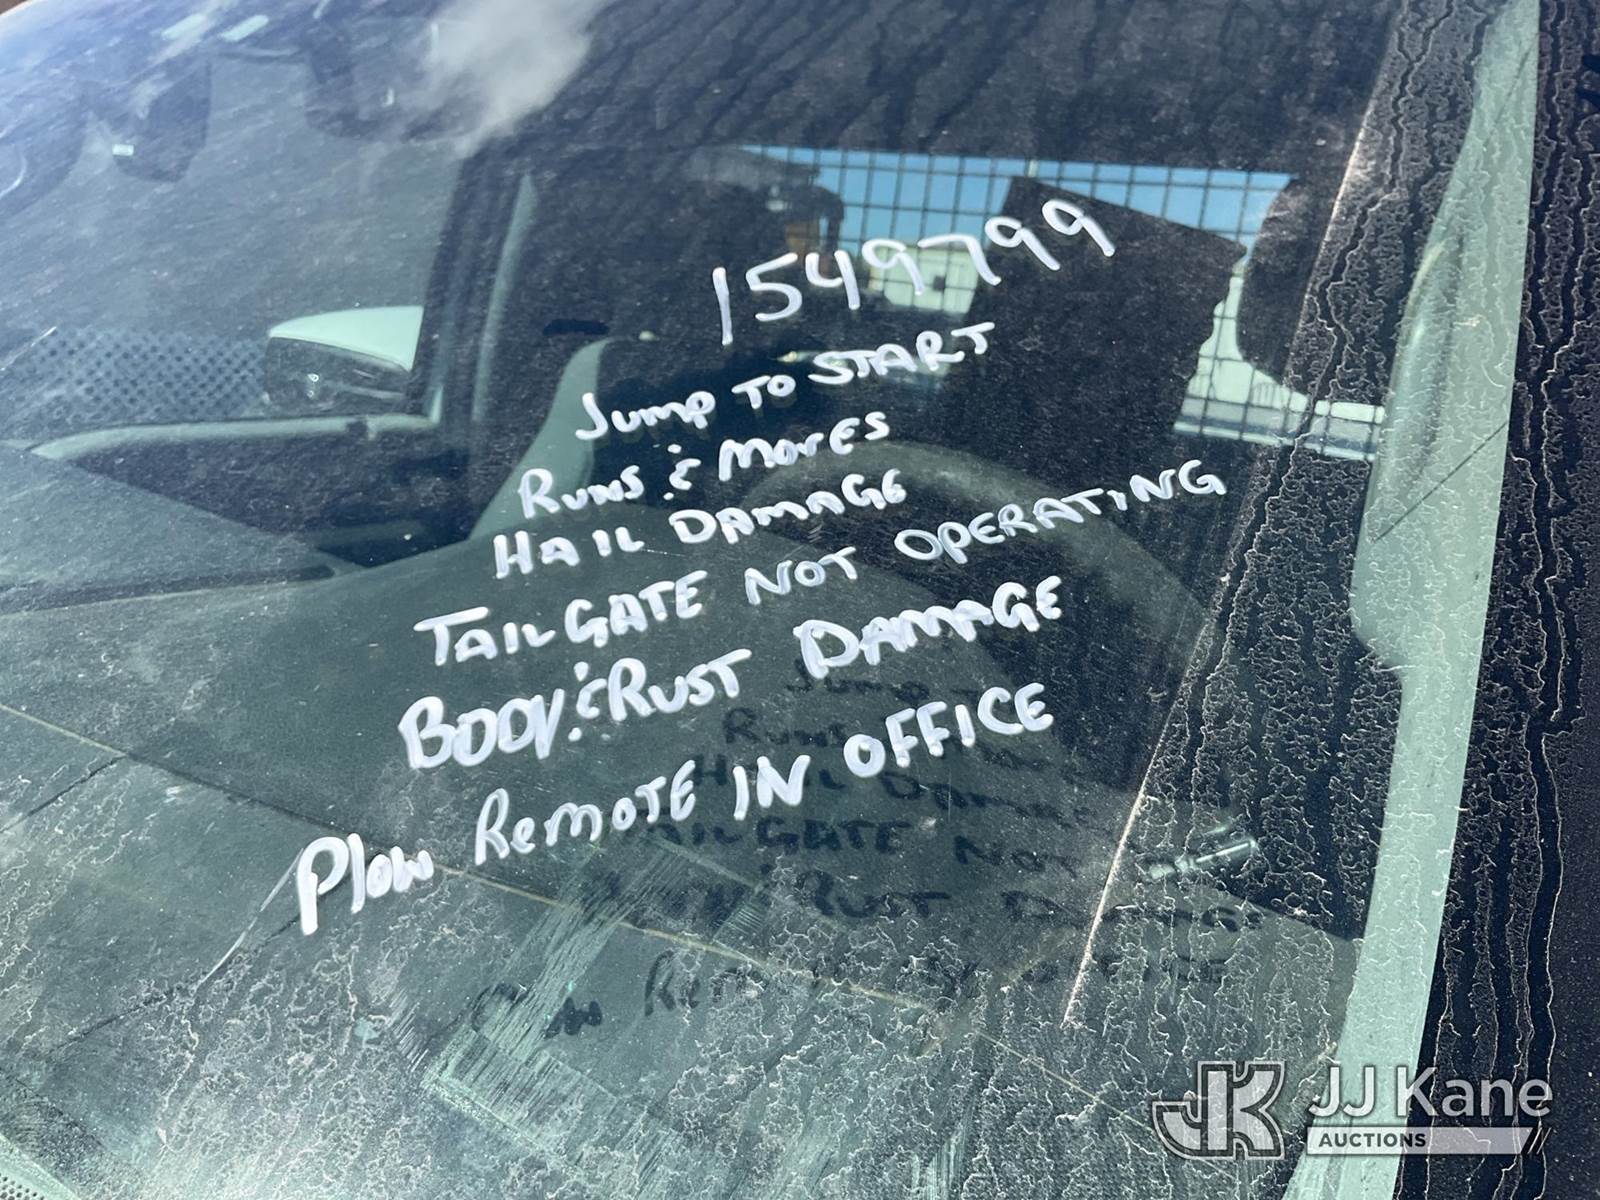 1549799
Jump to START
Runs & MovEs
HAIL DAMAGE
TAILGATE NOT OPERATING
BODY & RUST DAMAGE
Plow REmoTE IN OFFICE
JJ Kane
AUCTIONS